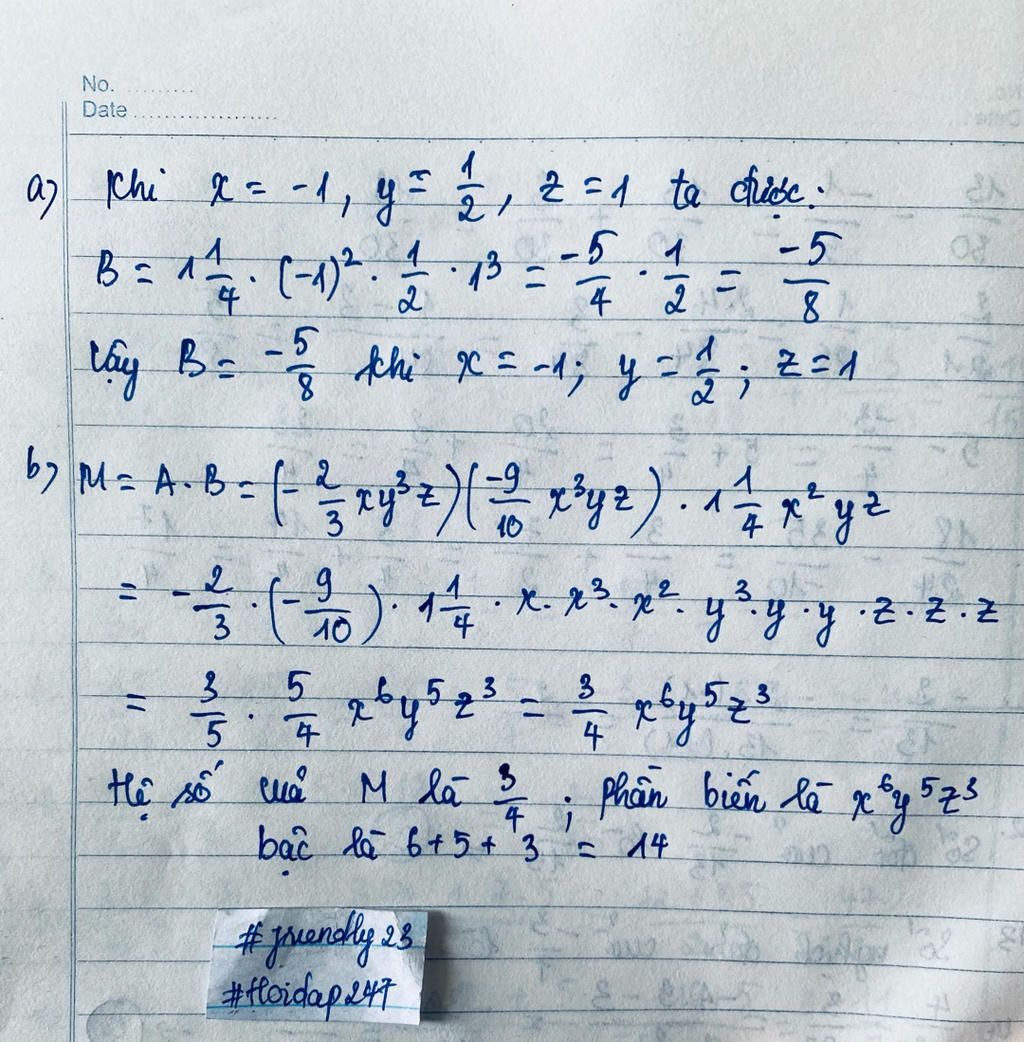 No. ..........
Date ....................
a) Khi x = -1, y = 1/2, z = 1 ta được:
B = 1 1/4 · (-1)² · 1/2 · 1³ = -5/4 · 1/2 = -5/8
Vậy B = -5/8 khi x = -1; y = 1/2; z = 1
b) M = A · B = (-2/3 xy³z)(-9/10 x³yz) · 1 1/4 x² yz
= -2/3 · (-9/10) · 1 1/4 · x · x³ · x² · y³ · y · y · z · z · z
= 3/5 · 5/4 x⁶y⁵z³ = 3/4 x⁶y⁵z³
Hệ số của M là 3/4 ; phần biến là x⁶y⁵z³
bậc là 6+5+3 = 14
#friendly23
#Hoidap247